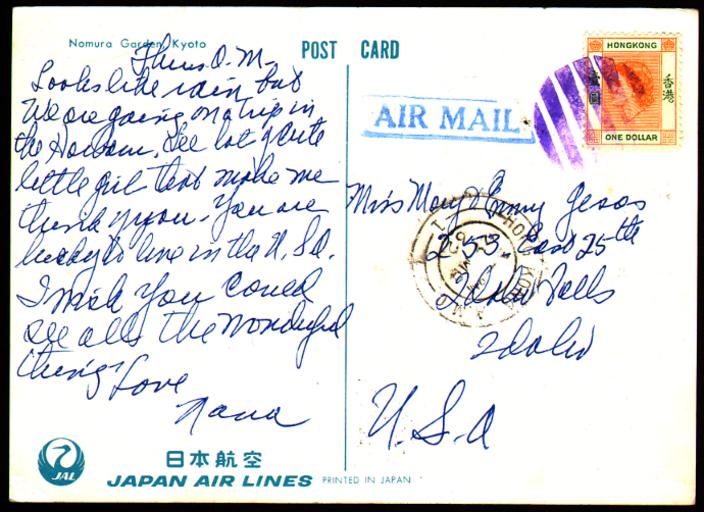 Nomura Garden, Kyoto
POST CARD
Thurs. A.M.
Looks like rain but
We are going on a trip in
the House. See lot of cute
little girl that make me
think of you. You are
lucky to live in the U.S.A.
I wish You could
see all the Wonderful
things Love
Nana
AIR MAIL
HONGKONG
香港
壹圓
ONE DOLLAR
Miss Mary & Emmy
HONG KONG
253 East 25th
Idaho Falls
Idaho
U.S.A
JAL
日本航空
JAPAN AIR LINES
PRINTED IN JAPAN